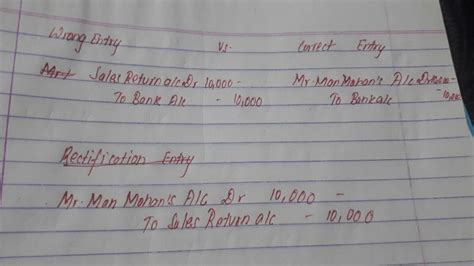 Wrong Entry Vs. Correct Entry
Sales Return a/c Dr 10,000 - Mr Man Mohan's A/c Dr 10,000 -
To Bank A/c - 10,000 To Bank a/c - 10,000
Rectification Entry
Mr. Man Mohan's A/c Dr 10,000 -
To Sales Return a/c - 10,000